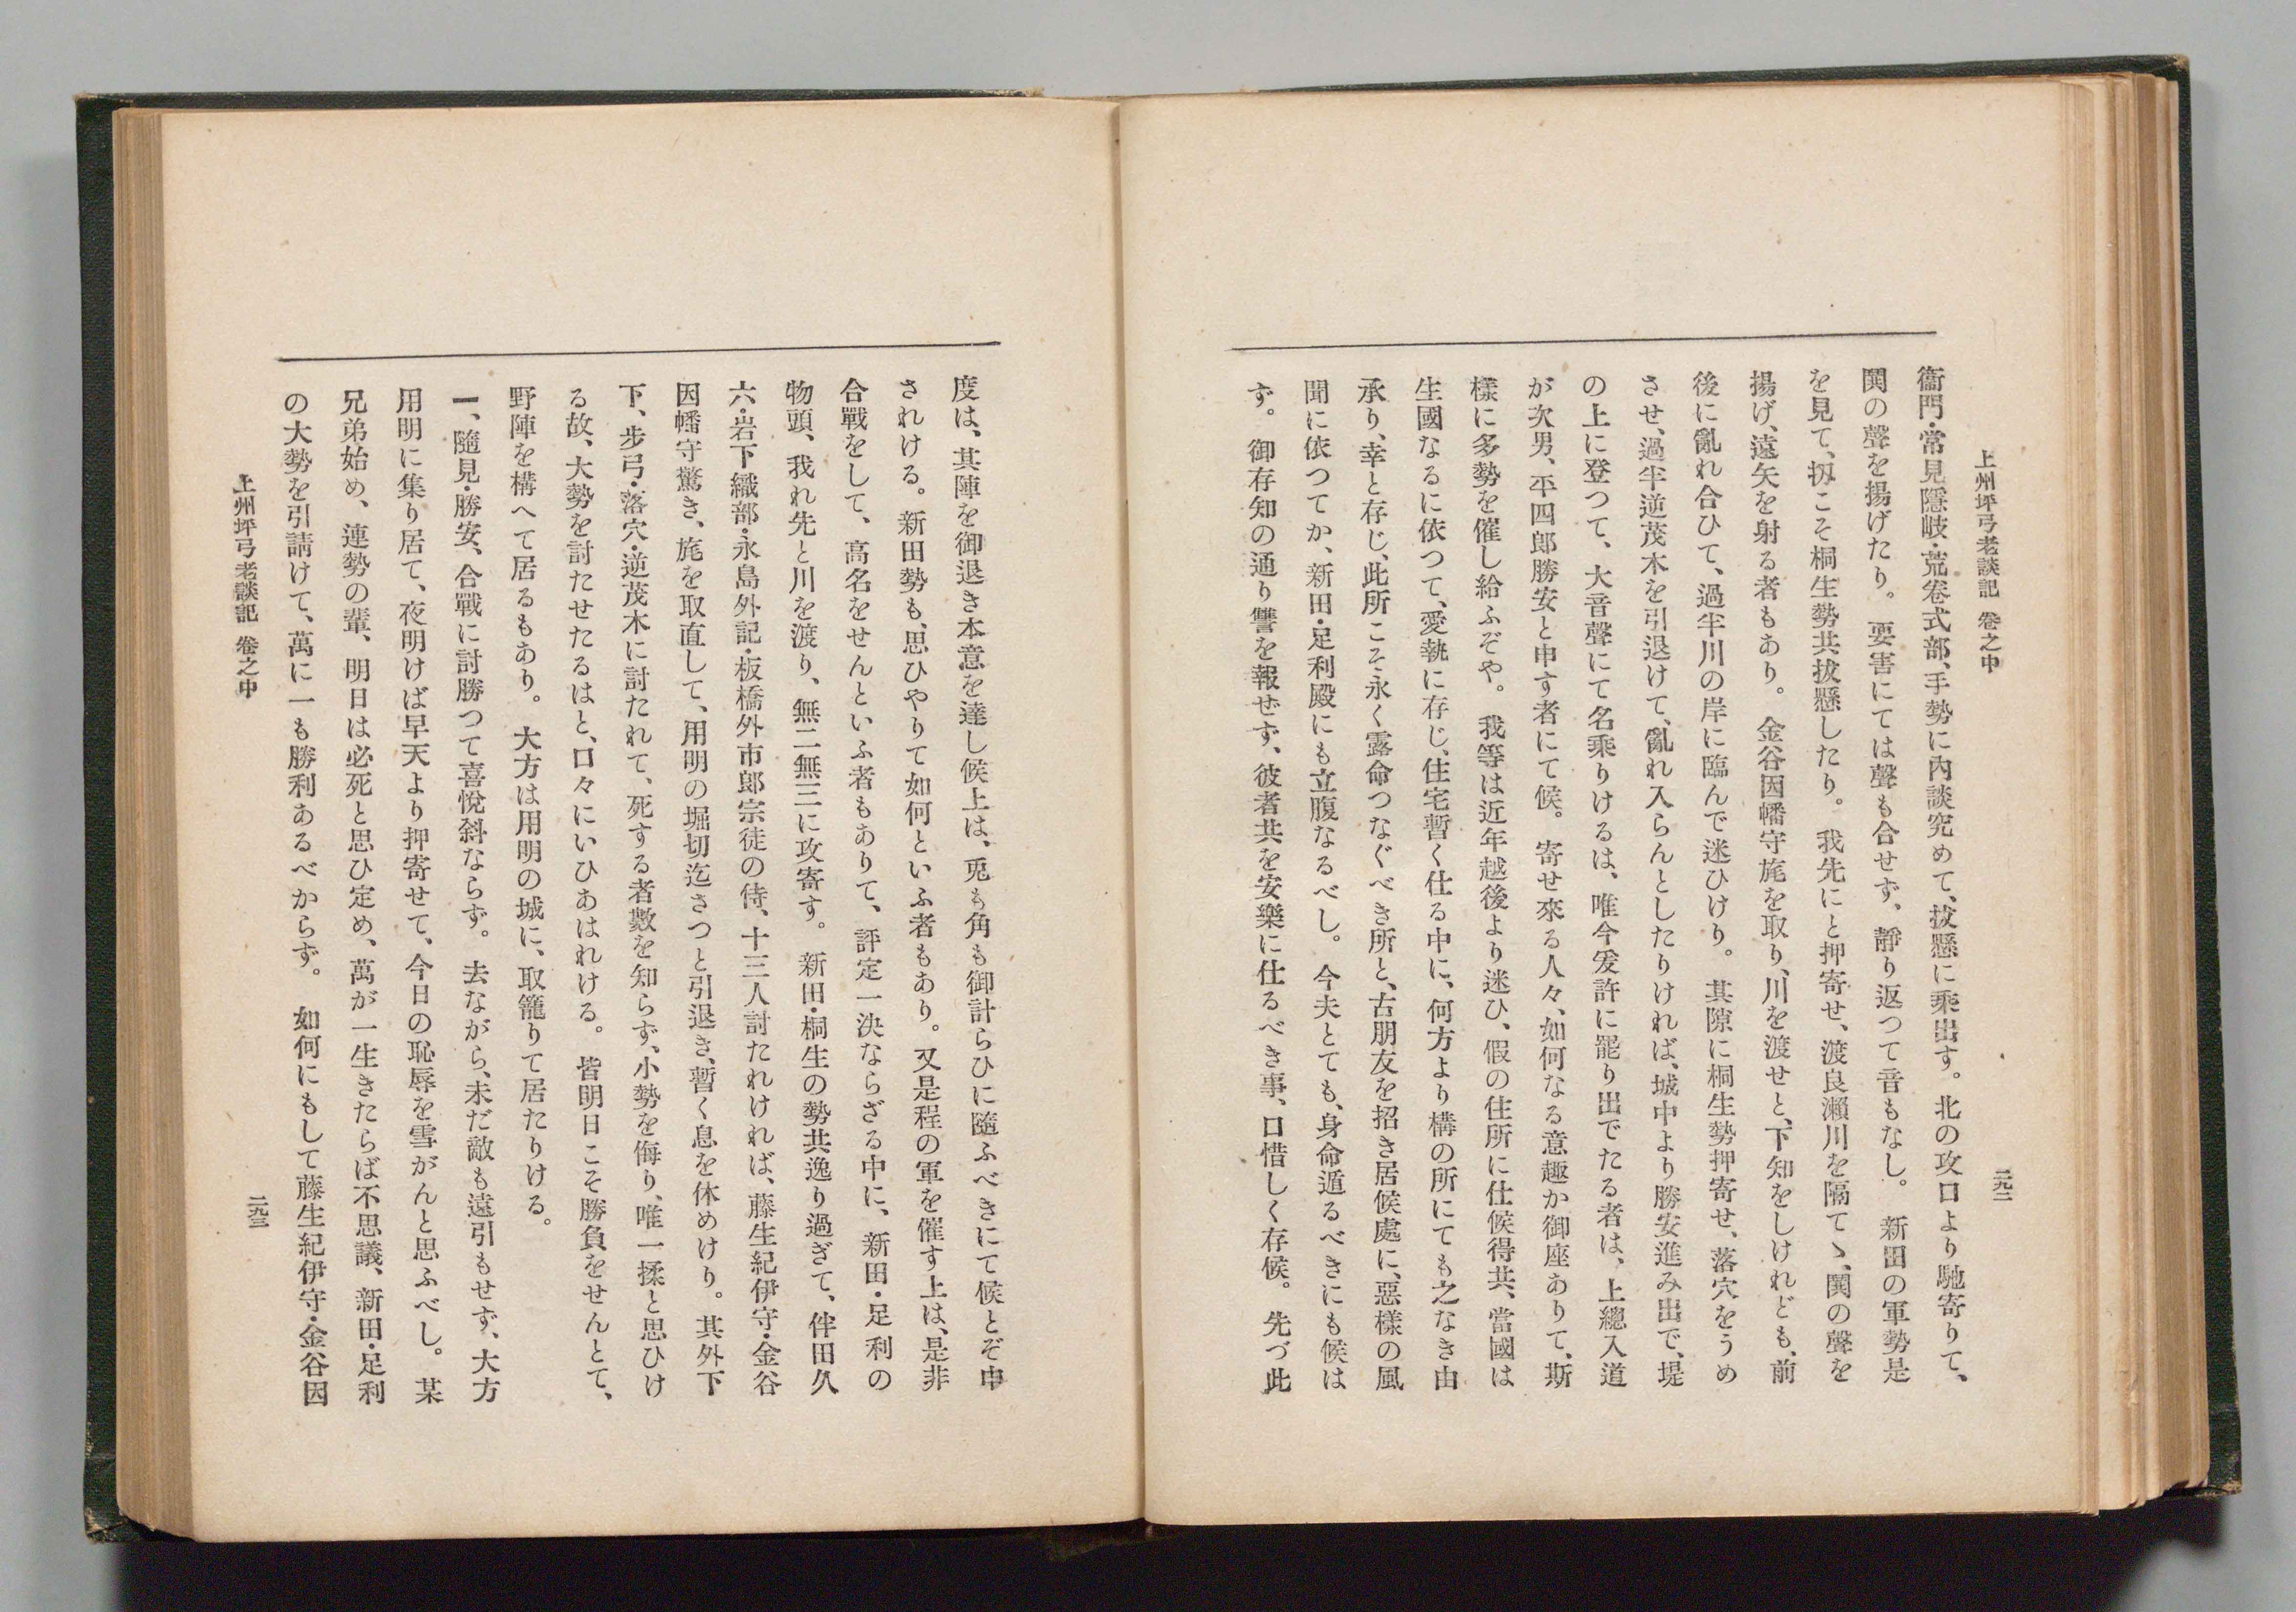 上州坪弓老談記　卷之中
二九二
衞門・常見隱岐・荒卷式部、手勢に內談究めて、拔懸に乘出す。北の攻口より馳寄りて、
鬨の聲を揚げたり。　要害にては聲も合せず、靜り返つて音もなし。　新田の軍勢是
を見て、扨こそ桐生勢共拔懸したり。　我先にと押寄せ、渡良瀨川を隔てゝ、鬨の聲を
揚げ、遠矢を射る者もあり。　金谷因幡守旄を取り、川を渡せと、下知をしけれども、前
後に亂れ合ひて、過半川の岸に臨んで迷ひけり。　其隙に桐生勢押寄せ、落穴をうめ
させ、過半逆茂木を引退けて、亂れ入らんとしたりければ、城中より勝安進み出で、堤
の上に登つて、大音聲にて名乘りけるは、唯今爰許に罷り出でたる者は、上總入道
が次男、平四郎勝安と申す者にて候。　寄せ來る人々、如何なる意趣か御座ありて、斯
樣に多勢を催し給ふぞや。　我等は近年越後より迷ひ、假の住所に仕候得共、當國は
生國なるに依つて、愛執に存じ、住宅暫く仕る中に、何方より構の所にても之なき由
承り、幸と存じ、此所こそ永く露命つなぐべき所と、古朋友を招き居候處に、惡樣の風
聞に依つてか、新田・足利殿にも立腹なるべし。　今夫とても、身命遁るべきにも候は
ず。　御存知の通り讐を報せず、彼者共を安樂に仕るべき事、口惜しく存候。　先づ此
度は、其陣を御退き本意を達し候上は、兎も角も御計らひに隨ふべきにて候とぞ申
されける。　新田勢も、思ひやりて如何といふ者もあり。　又是程の軍を催す上は、是非
合戰をして、高名をせんといふ者もありて、評定一決ならざる中に、新田・足利の
物頭、我れ先と川を渡り、無二無三に攻寄す。　新田・桐生の勢共逸り過ぎて、伴田久
六・岩下織部・永島外記・板橋外市郎宗徒の侍、十三人討たれければ、藤生紀伊守・金谷
因幡守驚き、旄を取直して、用明の堀切迄さつと引退き、暫く息を休めけり。　其外下
下、步弓・落穴・逆茂木に討たれて、死する者數を知らず、小勢を侮り、唯一揉と思ひけ
る故、大勢を討たせたるはと、口々にいひあはれける。　皆明日こそ勝負をせんとて、
野陣を構へて居るもあり。　大方は用明の城に、取籠りて居たりける。
一、隨見・勝安、合戰に討勝つて喜悅斜ならず。　去ながら、未だ敵も遠引もせず、大方
用明に集り居て、夜明けば早天より押寄せて、今日の恥辱を雪がんと思ふべし。　某
兄弟始め、連勢の輩、明日は必死と思ひ定め、萬が一生きたらば不思議、新田・足利
の大勢を引請けて、萬に一も勝利あるべからず。　如何にもして藤生紀伊守・金谷因
上州坪弓老談記　卷之中
二九三